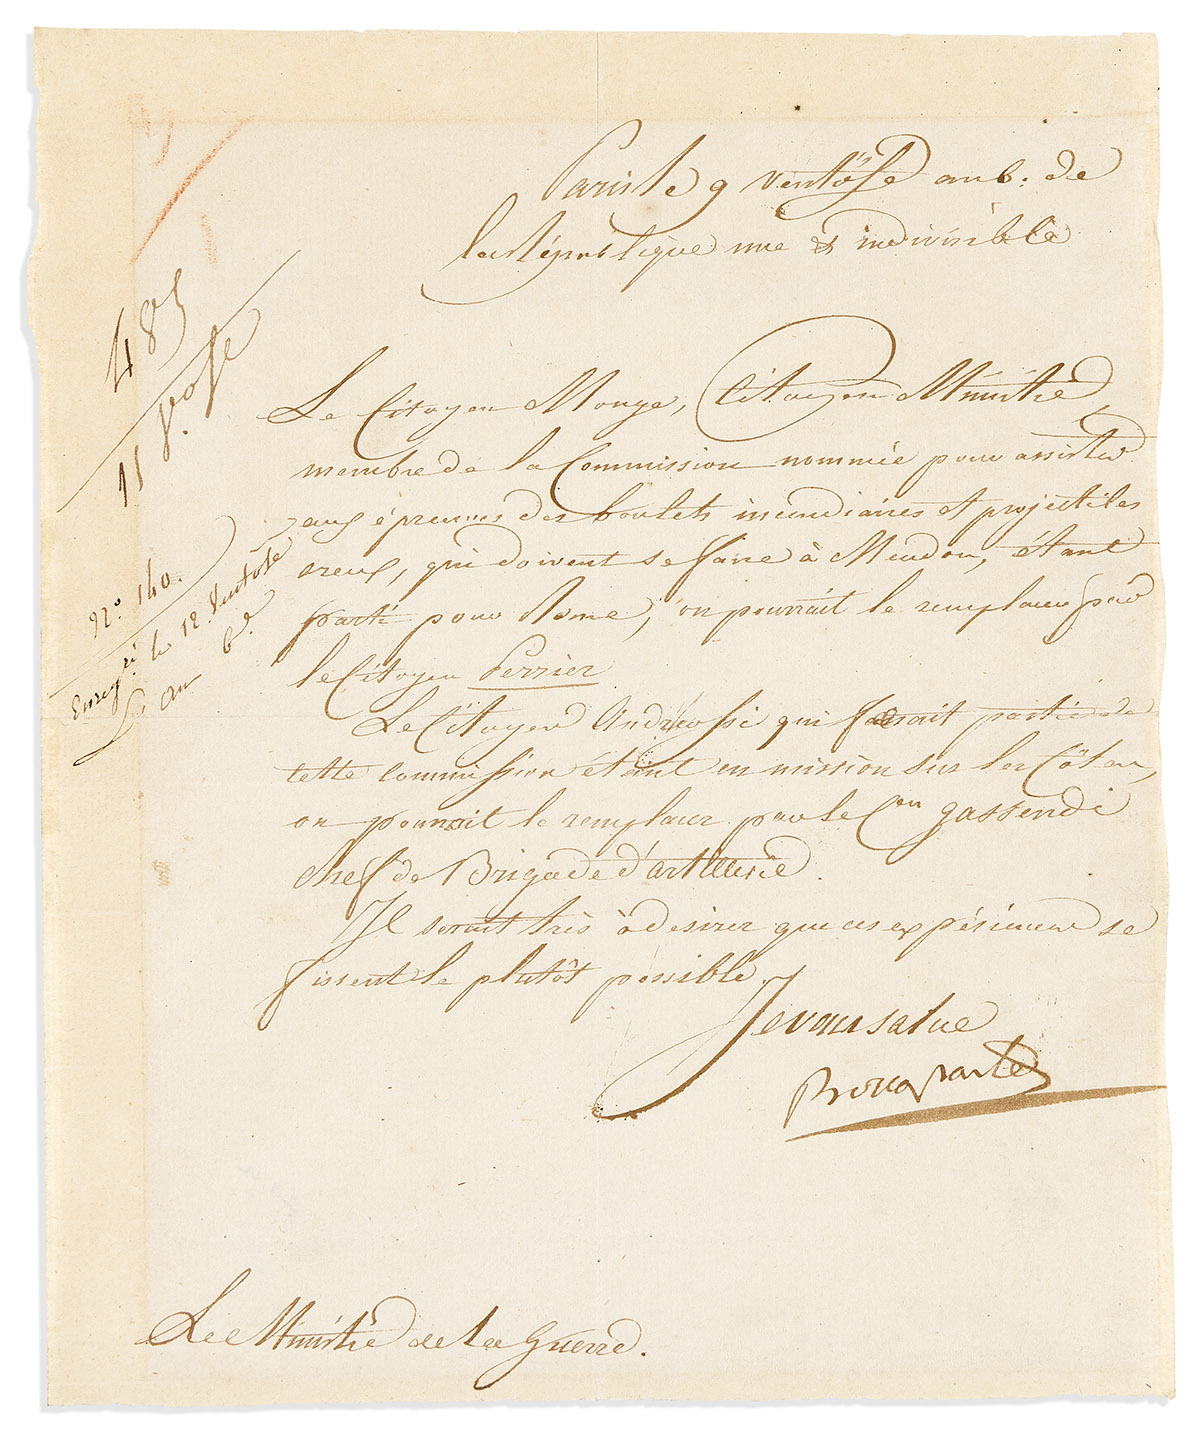 Paris le 9 ventôse an 6. de
la République une & indivisible
485
11 v.ose
N.º 140.
Enregé le 12. Ventôse
an 6e.
Le Citoyen Monge, Citoyen Ministre,
membre de la Commission nommée pour assister
aux épreuves des boulets incendiaires et projectiles
creux, qui doivent se faire à Meudon, étant
parti pour Rome, on pourrait le remplacer par
le Citoyen Perrier
Le Citoyen Andréossi qui faisait partie de
cette commission étant en mission sur les Côtes,
on pourrait le remplacer par le Cen gassendi
chef de Brigade d'artillerie.
Il serait très à desirer que ces expériences se
fissent le plutôt possible.
Je vous salue
Bonaparte
Le Ministre de la Guerre.